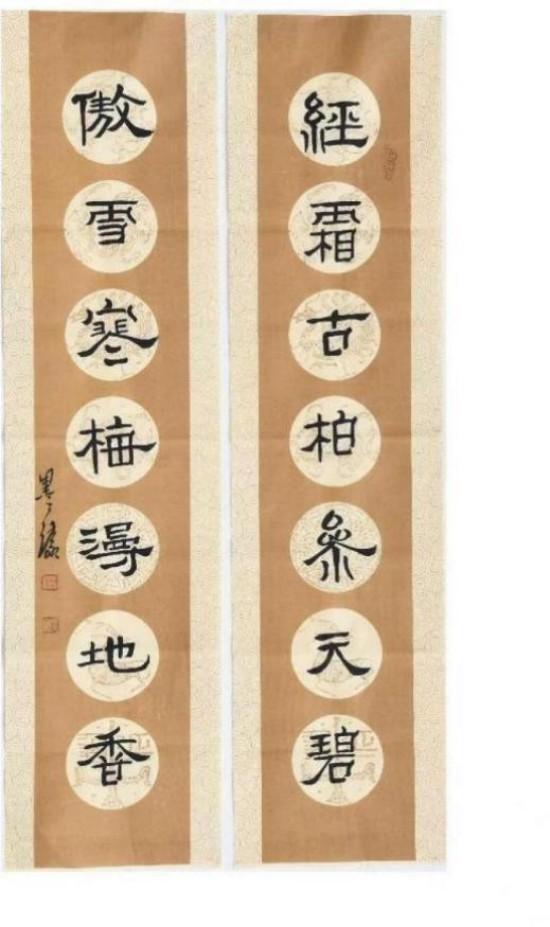 經霜古柏參天碧
傲雪寒梅漫地香